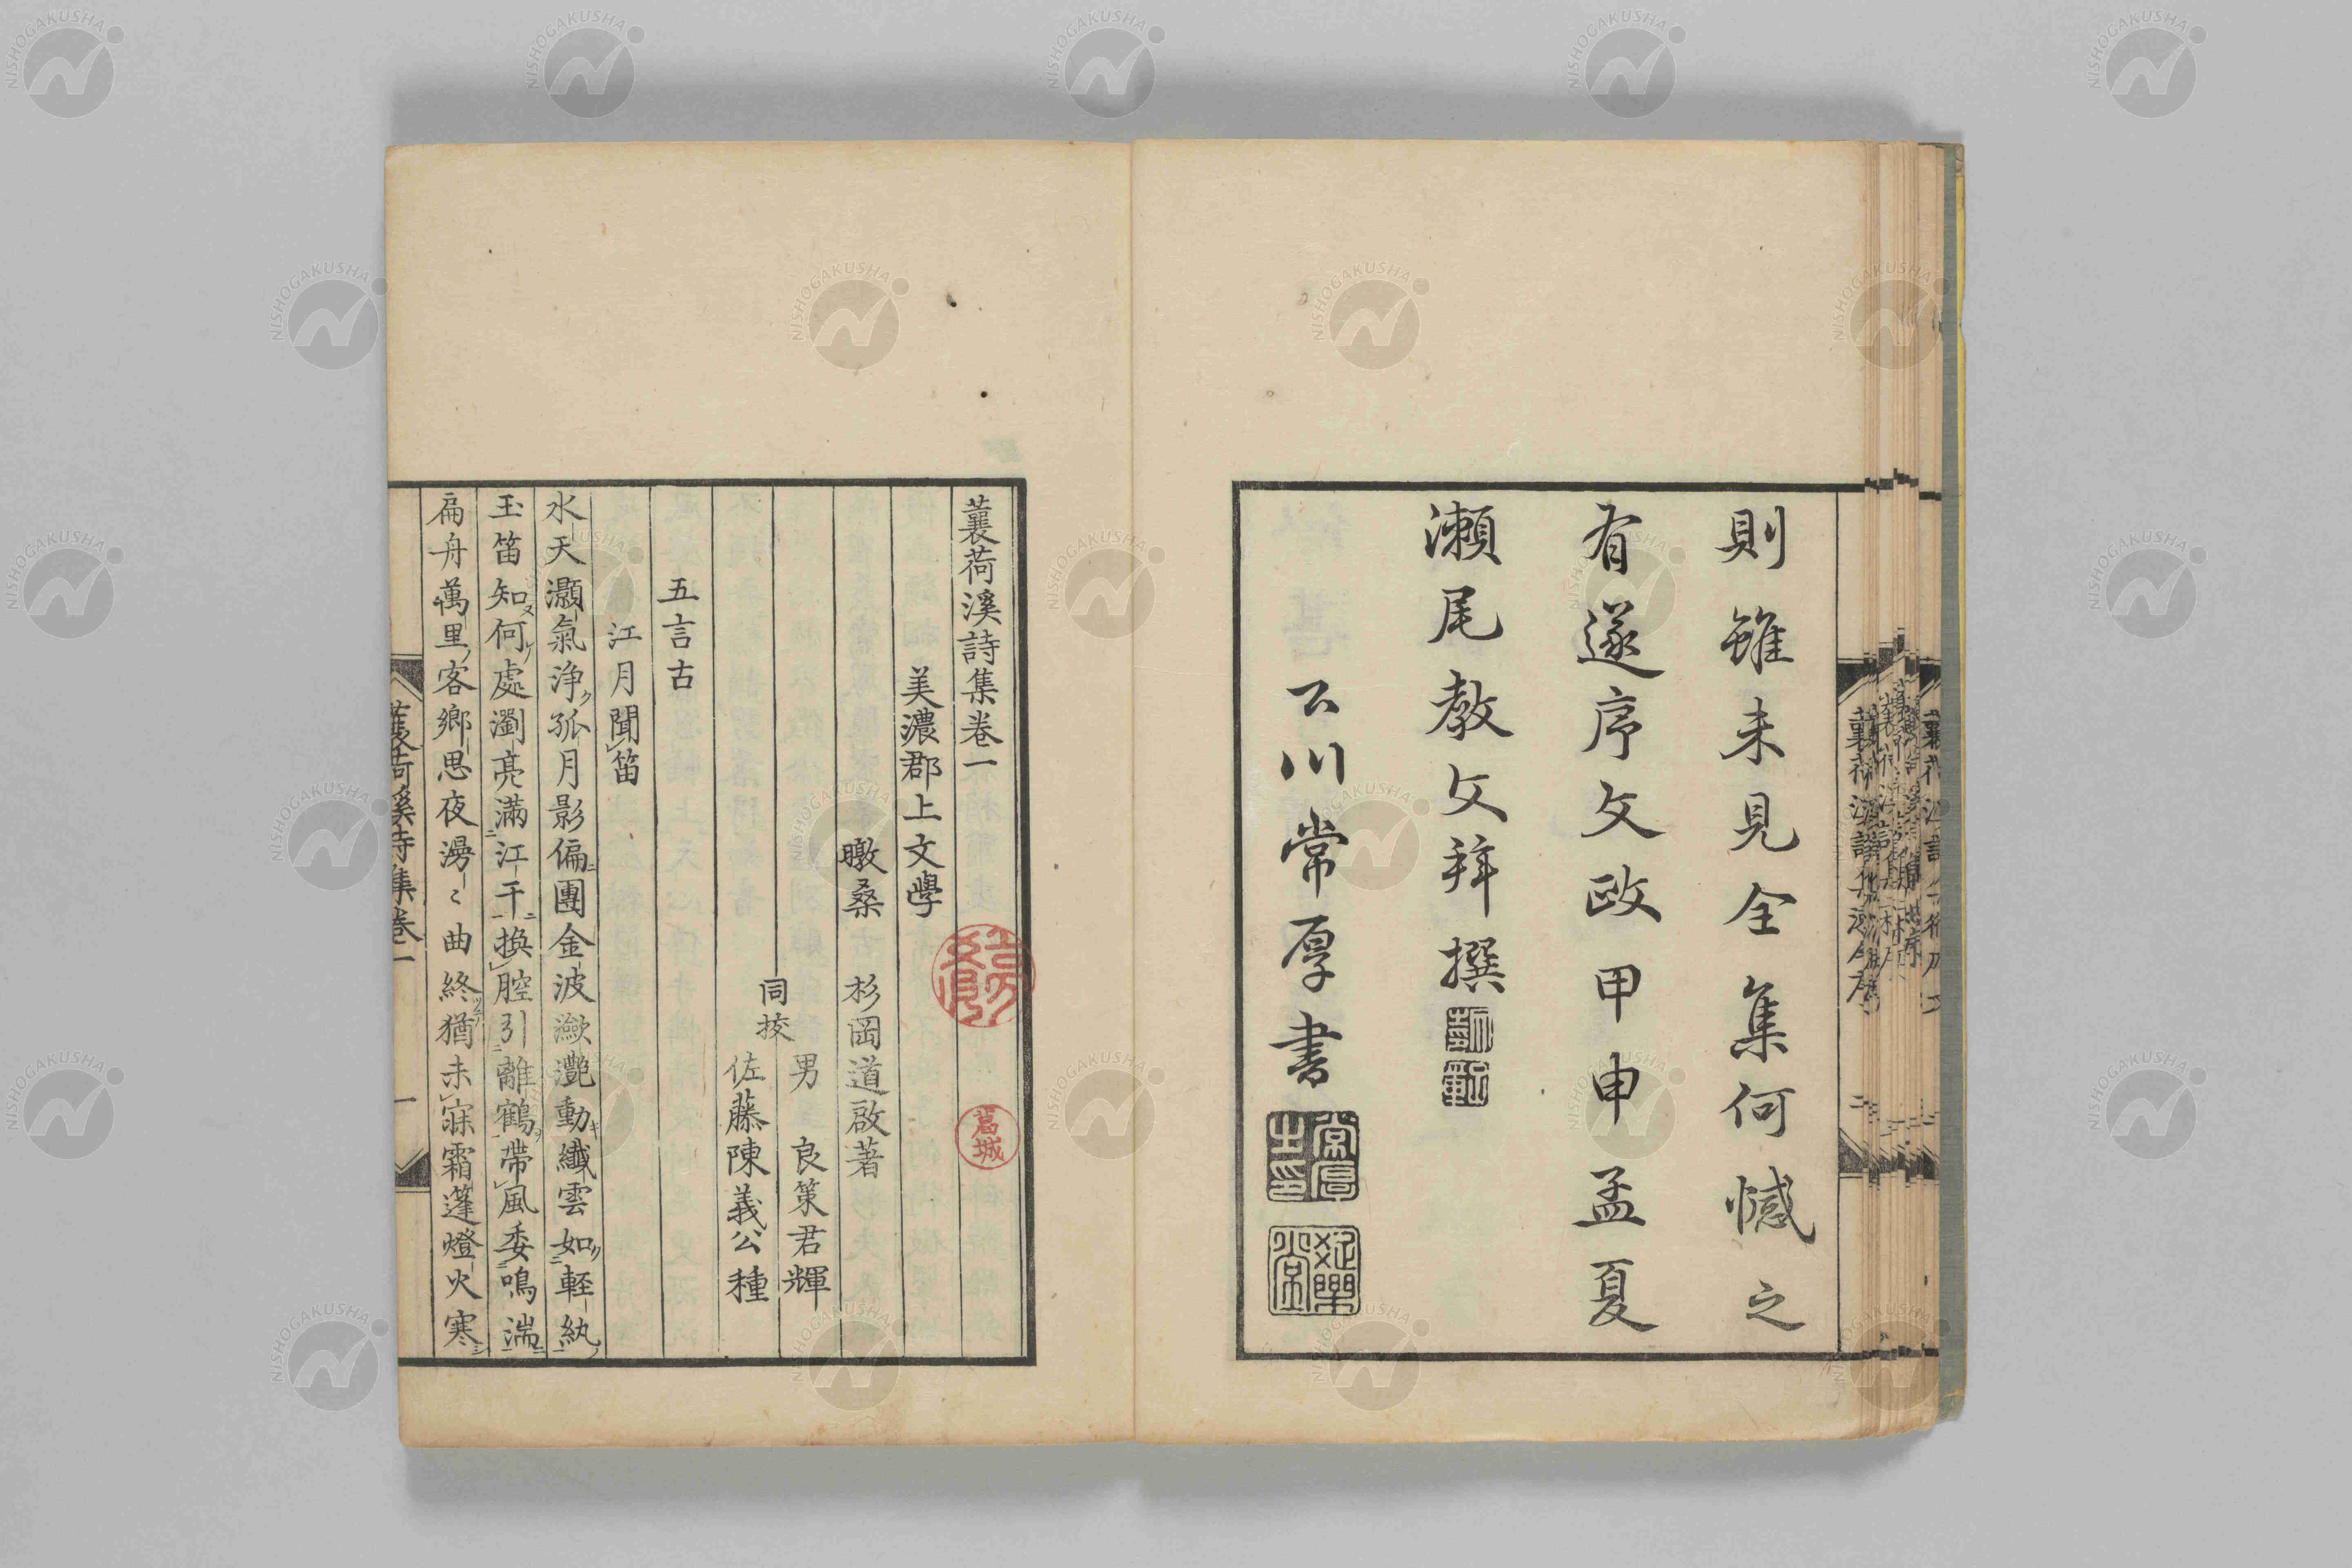 則雖未見全集何憾之
有遂序文政甲申孟夏
瀨尾教文拜撰
川常厚書
蘘荷溪詩集卷一
美濃郡上文學
暾桑 杉岡道啟著
同挍
男 良策君輝
佐藤陳義公種
五言古
江月聞笛
水天灝氣浄孤月影偏團金波瀲灔動纖雲如軽紈
玉笛知何處瀏亮滿江干換腔引離鶴帶風委鳴湍
扁舟萬里客鄉思夜漫〻曲終猶未寐霜蓬燈火寒
蘘荷溪詩集卷一
一
葛城
NISHOGAKUSHA